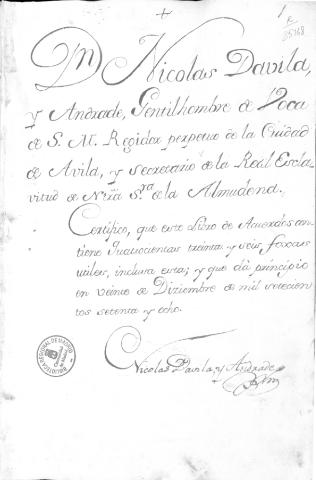 +
1
25168
Dn Nicolas Davila,
y Andrade, Gentilhombre de Voca
de S. M. Regidor perpetuo de la Ciudad
de Avila, y secretario de la Real Escla-
vitud de Ntra. Sra. de la Almudena.
Certifico, que este Libro de Acuerdos con
tiene quatrocientas treinta y seis foxas
utiles, inclusa esta; y que dà principio
en veinte de Diziembre de mil setecien
tos setenta y ocho.
Nicolas Davila, y Andrade
BIBLIOTECA REGIONAL DE MADRID